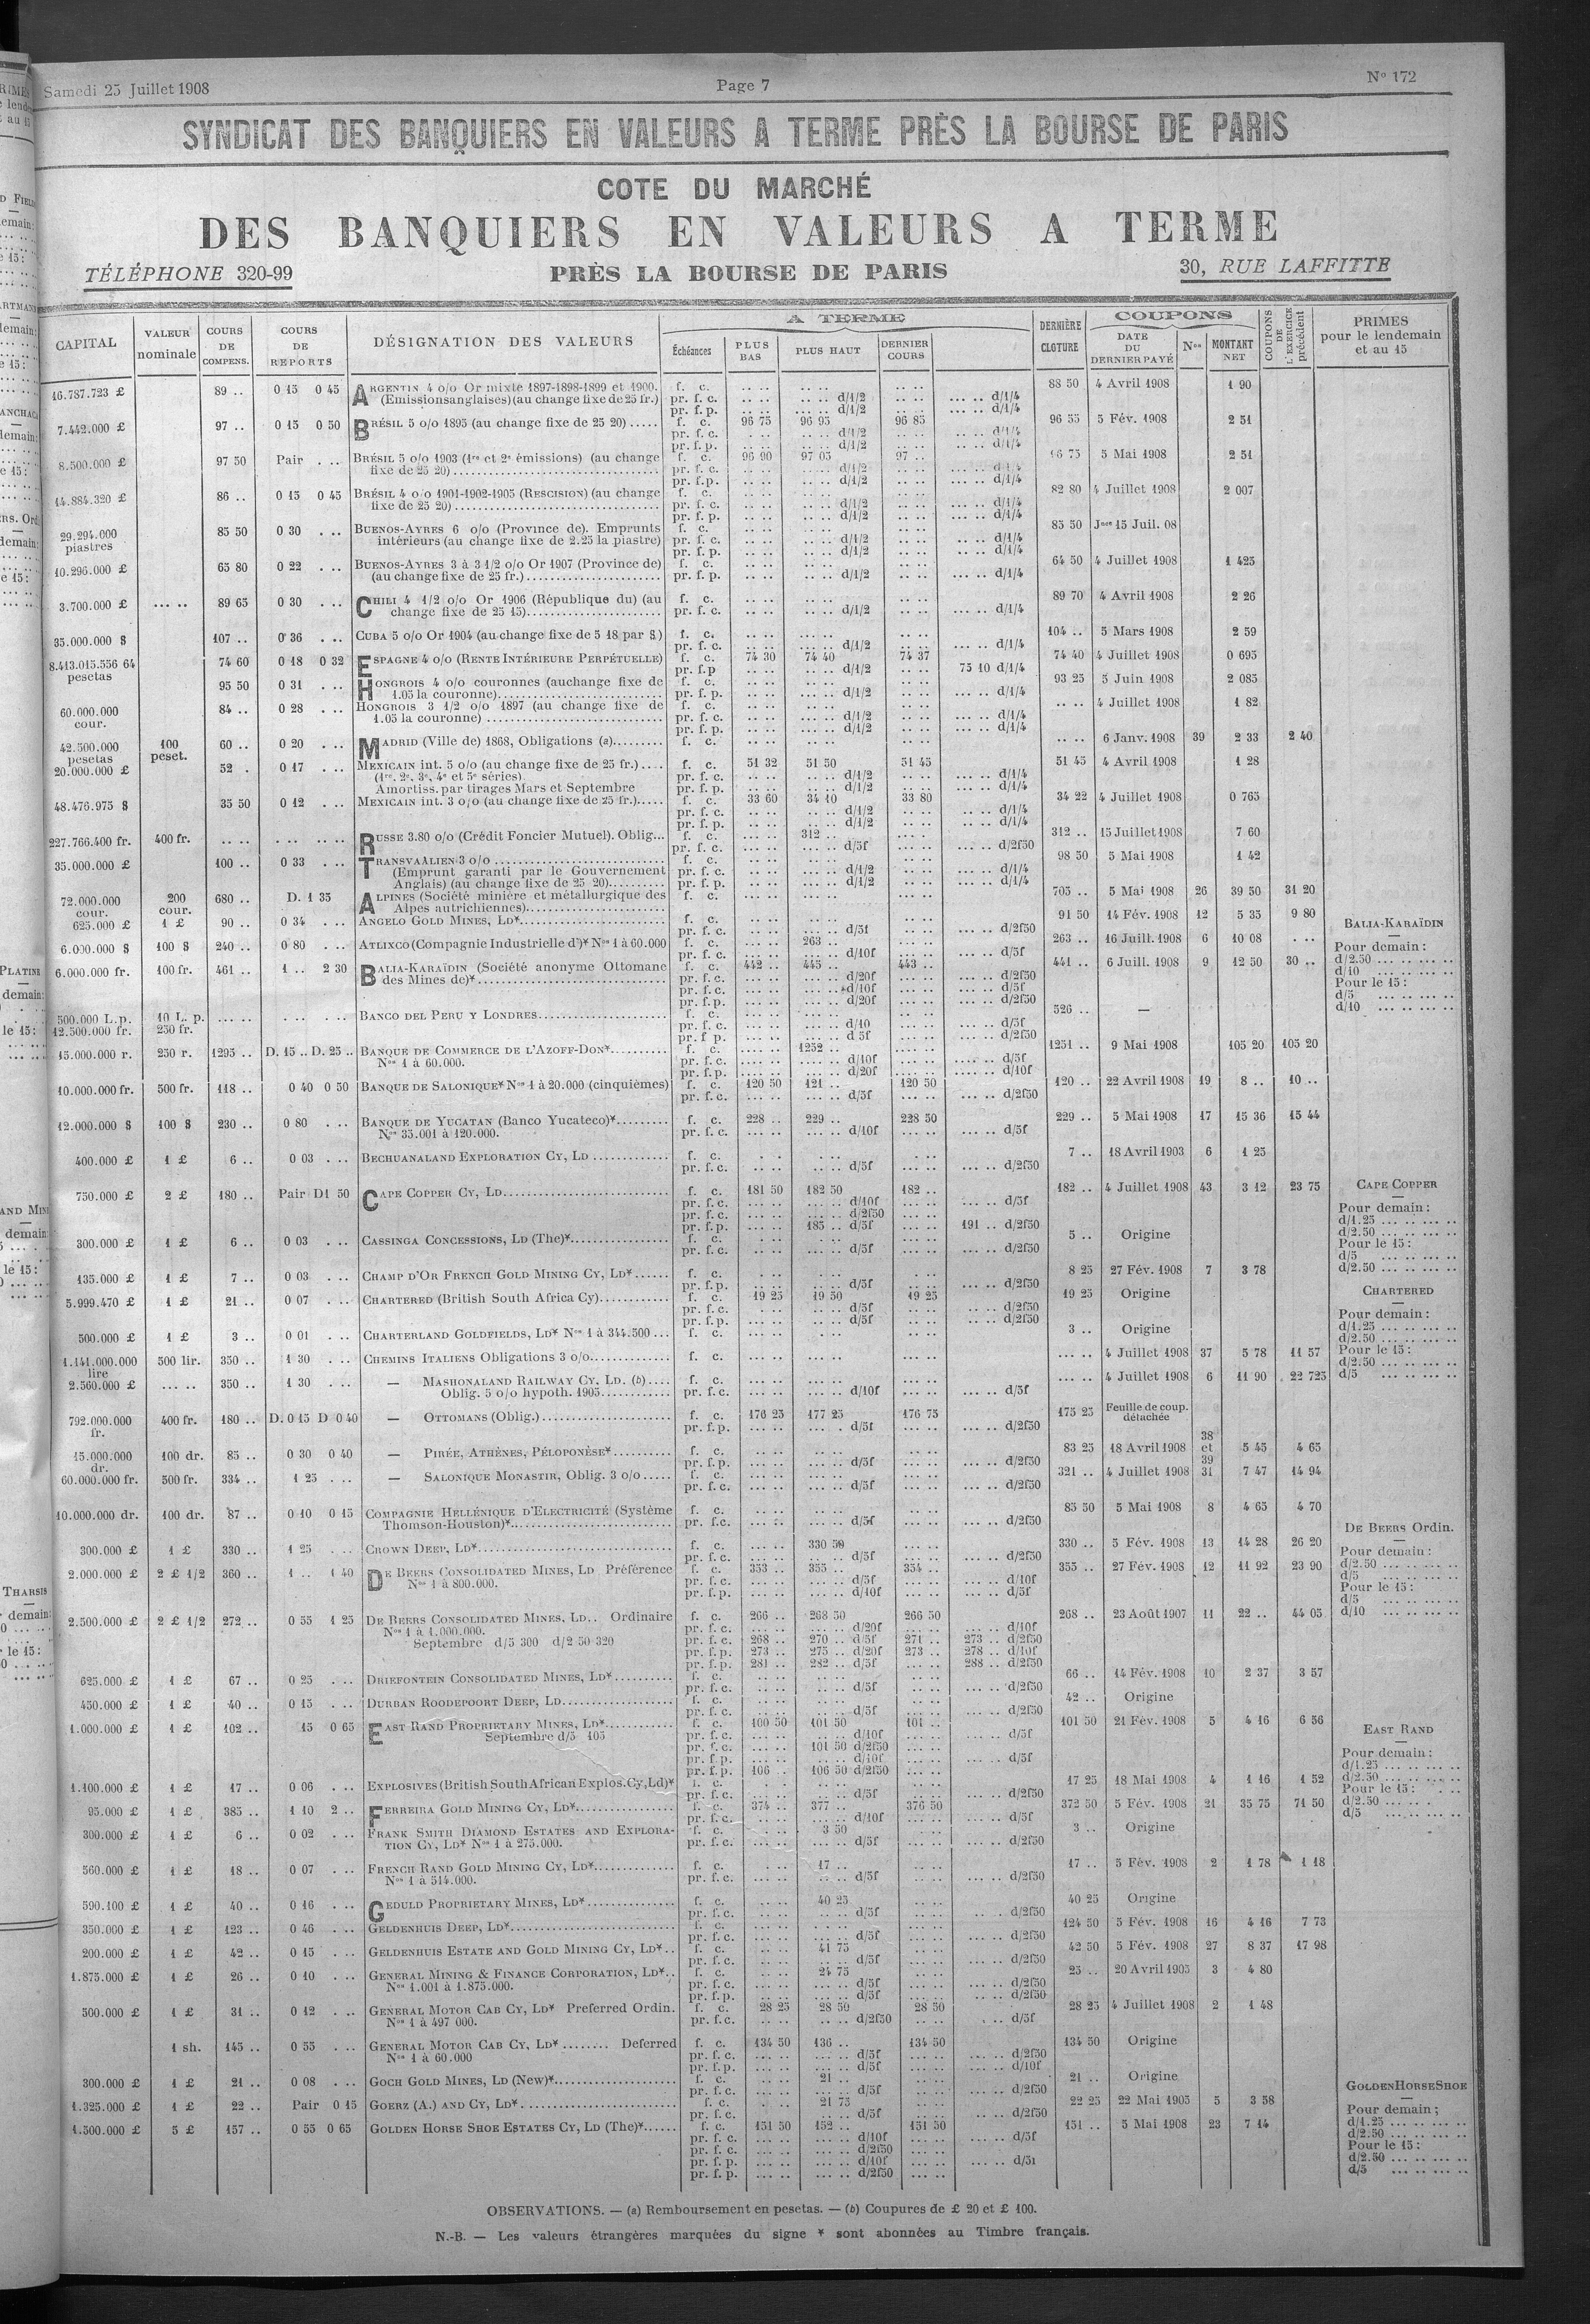 Samedi 25 Juillet 1908 Page 7 N° 172
SYNDICAT DES BANQUIERS EN VALEURS A TERME PRÈS LA BOURSE DE PARIS
COTE DU MARCHÉ
DES BANQUIERS EN VALEURS A TERME
TÉLÉPHONE 320-99 PRÈS LA BOURSE DE PARIS 30, RUE LAFFITTE
CAPITAL VALEUR nominale COURS DE COMPENS. COURS DE REPORTS DÉSIGNATION DES VALEURS A TERME Échéances PLUS BAS PLUS HAUT DERNIER COURS DERNIÈRE CLOTURE COUPONS DATE DU DERNIER PAYÉ Nos MONTANT NET COUPONS DE L'EXERCICE précédent PRIMES pour le lendemain et au 15
16.787.723 £ 89 .. 0 15 0 45 ARGENTIN 4 o/o Or mixte 1897-1898-1899 et 1900. f. c. 88 50 4 Avril 1908 1 90
(Emissions anglaises) (au change fixe de 25 fr.) pr. f. c. d/1/2 d/1/4
pr. f. p. d/1/2 d/1/4
7.442.000 £ 97 .. 0 15 0 50 BRÉSIL 5 o/o 1895 (au change fixe de 25 20) ..... f. c. 96 75 96 95 96 85 96 55 5 Fév. 1908 2 51
pr. f. c. d/1/2 d/1/4
pr. f. p. d/1/2 d/1/4
8.500.000 £ 97 50 Pair BRÉSIL 5 o/o 1903 (1re et 2e émissions) (au change f. c. 96 90 97 05 97 .. 5 Mai 1908 2 51
fixe de 25 20) pr. f. c. d/1/2 d/1/4
pr. f. p. d/1/2 d/1/4
14.884.320 £ 86 .. 0 15 0 45 BRÉSIL 4 o/o 1901-1902-1905 (RESCISION) (au change f. c. 82 80 4 Juillet 1908 2 007
fixe de 25 20) pr. f. c. d/1/2 d/1/4
pr. f. p. d/1/2 d/1/4
29.294.000 piastres 85 50 0 30 BUENOS-AYRES 6 o/o (Province de). Emprunts f. c. 85 50 Jnce 15 Juil. 08
intérieurs (au change fixe de 2.25 la piastre) pr. f. c. d/1/2 d/1/4
pr. f. p. d/1/2 d/1/4
10.296.000 £ 65 80 0 22 BUENOS-AYRES 3 à 3 1/2 o/o Or 1907 (Province de) f. c. 64 50 4 Juillet 1908 1 425
(au change fixe de 25 fr.) pr. f. p. d/1/2 d/1/4
3.700.000 £ 89 65 0 30 CHILI 4 1/2 o/o Or 1906 (République du) (au f. c. 89 70 4 Avril 1908 2 26
change fixe de 25 15) pr. f. c. d/1/2 d/1/4
35.000.000 $ 107 .. 0 36 CUBA 5 o/o Or 1904 (au change fixe de 5 18 par $) f. c. 104 .. 5 Mars 1908 2 59
pr. f. c. d/1/2 d/1/4
8.413.015.556 64 pesetas 74 60 0 18 0 32 ESPAGNE 4 o/o (RENTE INTÉRIEURE PERPÉTUELLE) f. c. 74 30 74 40 74 37 74 40 4 Juillet 1908 0 695
pr. f. p d/1/2 75 10 d/1/4
95 50 0 31 HONGROIS 4 o/o couronnes (au change fixe de f. c. 93 25 5 Juin 1908 2 085
1.05 la couronne) pr. f. p. d/1/2 d/1/4
60.000.000 cour. 84 .. 0 28 HONGROIS 3 1/2 o/o 1897 (au change fixe de f. c. 4 Juillet 1908 1 82
1.05 la couronne) pr. f. c. d/1/2 d/1/4
pr. f. p. d/1/2 d/1/4
42.500.000 pesetas 100 peset. 60 .. 0 20 MADRID (Ville de) 1868, Obligations (a) f. c. 6 Janv. 1908 39 2 33 2 40
20.000.000 £ 52 . 0 17 MEXICAIN int. 5 o/o (au change fixe de 25 fr.) .... f. c. 51 32 51 50 51 45 51 45 4 Avril 1908 1 28
(1re, 2e, 3e, 4e et 5e séries) pr. f. c. d/1/2 d/1/4
Amortiss. par tirages Mars et Septembre pr. f. p. d/1/2 d/1/4
48.476.975 $ 35 50 0 12 MEXICAIN int. 3 o/o (au change fixe de 25 fr.) ..... f. c. 33 60 34 10 33 80 34 22 4 Juillet 1908 0 765
pr. f. c. d/1/2 d/1/4
pr. f. p. d/1/2 d/1/4
227.766.400 fr. 400 fr. RUSSE 3.80 o/o (Crédit Foncier Mutuel). Oblig... f. c. 312 .. 312 .. 15 Juillet 1908 7 60
pr. f. c. d/5f d/2f50
35.000.000 £ 100 .. 0 33 TRANSVAALIEN 3 o/o f. c. 98 50 5 Mai 1908 1 42
(Emprunt garanti par le Gouvernement pr. f. c. d/1/2 d/1/4
Anglais) (au change fixe de 25 20) pr. f. p. d/1/2 d/1/4
72.000.000 cour. 200 cour. 680 .. D. 1 35 ALPINES (Société minière et métallurgique des f. c. 705 .. 5 Mai 1908 26 39 50 31 20
Alpes autrichiennes)
625.000 £ 1 £ 90 .. 0 34 ANGELO GOLD MINES, LD* f. c. 91 50 14 Fév. 1908 12 5 35 9 80
pr. f. c. d/5f d/2f50
6.000.000 $ 100 $ 240 .. 0 80 ATLIXCO (Compagnie Industrielle d')* Nos 1 à 60.000 f. c. 263 .. 263 .. 16 Juill. 1908 6 10 08
pr. f. c. d/10f d/5f
6.000.000 fr. 100 fr. 461 .. 1 .. 2 30 BALIA-KARAÏDIN (Société anonyme Ottomane f. c. 442 .. 445 .. 443 .. 441 .. 6 Juill. 1908 9 12 50 30 ..
des Mines de)* pr. f. c. d/20f d/2f50
pr. f. c. d/10f d/5f
pr. f. p. d/20f d/2f50
500.000 L.p. 10 L. p. BANCO DEL PERU Y LONDRES f. c. 526 .. —
12.500.000 fr. 250 fr. pr. f. c. d/10 d/5f
pr. f p. d 5f d/2f50
15.000.000 r. 250 r. 1295 .. D. 15 .. D. 25 .. BANQUE DE COMMERCE DE L'AZOFF-DON* f. c. 1252 .. 1251 .. 9 Mai 1908 105 20 105 20
Nos 1 à 60.000. pr. f. c. d/10f d/5f
pr. f. p. d/20f d/10f
10.000.000 fr. 500 fr. 118 .. 0 40 0 50 BANQUE DE SALONIQUE* Nos 1 à 20.000 (cinquièmes) f. c. 120 50 121 .. 120 50 120 .. 22 Avril 1908 19 8 .. 10 ..
pr. f. c. d/5f d/2f50
12.000.000 $ 100 $ 230 .. 0 80 BANQUE DE YUCATAN (Banco Yucateco)* f. c. 228 .. 229 .. 228 50 229 .. 5 Mai 1908 17 15 36 15 44
Nos 35.001 à 120.000. pr. f. c. d/10f d/5f
400.000 £ 1 £ 6 .. 0 03 BECHUANALAND EXPLORATION CY, LD f. c. 7 .. 18 Avril 1903 6 1 25
pr. f. c. d/5f d/2f50
750.000 £ 2 £ 180 .. Pair D1 50 CAPE COPPER CY, LD f. c. 181 50 182 50 182 .. 182 .. 4 Juillet 1908 43 3 12 23 75
pr. f. c. d/10f d/5f
pr. f. c. d/2f50
pr. f. p. 185 .. d/5f 191 .. d/2f50
300.000 £ 1 £ 6 .. 0 03 CASSINGA CONCESSIONS, LD (The)* f. c. 5 .. Origine
pr. f. c. d/5f d/2f50
135.000 £ 1 £ 7 .. 0 03 CHAMP D'OR FRENCH GOLD MINING CY, LD* f. c. 8 25 27 Fév. 1908 7 3 78
pr. f. p. d/5f d/2f50
5.999.470 £ 1 £ 21 .. 0 07 CHARTERED (British South Africa Cy) f. c. 19 25 19 50 19 25 19 25 Origine
pr. f. c. d/5f d/2f50
pr. f. p. d/5f d/2f50
500.000 £ 1 £ 3 .. 0 01 CHARTERLAND GOLDFIELDS, LD* Nos 1 à 344.500 ... f. c. 3 .. Origine
1.141.000.000 lire 500 lir. 350 .. 1 30 CHEMINS ITALIENS Obligations 3 o/o f. c. 4 Juillet 1908 37 5 78 11 57
2.560.000 £ 350 .. 1 30 — MASHONALAND RAILWAY CY, LD. (b) f. c. 4 Juillet 1908 6 11 90 22 725
Oblig. 5 o/o hypoth. 1905 pr. f. c. d/10f d/5f
792.000.000 fr. 400 fr. 180 .. D. 0 15 D 0 40 — OTTOMANS (Oblig.) f. c. 176 25 177 25 176 75 175 25 Feuille de coup. détachée
pr. f. p. d/5f d/2f50
15.000.000 dr. 100 dr. 85 .. 0 30 0 40 — PIRÉE, ATHÈNES, PÉLOPONÈSE* f. c. 83 25 18 Avril 1908 38 et 39 5 45 4 65
pr. f. p. d/5f d/2f50
60.000.000 fr. 500 fr. 334 .. 1 25 — SALONIQUE MONASTIR, Oblig. 3 o/o f. c. 321 .. 4 Juillet 1908 31 7 47 14 94
pr. f. c. d/5f d/2f50
10.000.000 dr. 100 dr. 87 .. 0 10 0 15 COMPAGNIE HELLÉNIQUE D'ELECTRICITÉ (Système f. c. 85 50 5 Mai 1908 8 4 65 4 70
Thomson-Houston)* pr. f.c. d/5f d/2f50
300.000 £ 1 £ 330 .. 1 25 CROWN DEEP, LD* f. c. 330 50 330 .. 5 Fév. 1908 13 14 28 26 20
pr. f. c. d/5f d/2f50
2.000.000 £ 2 £ 1/2 360 .. 1 .. 1 40 DE BEERS CONSOLIDATED MINES, LD Préférence f. c. 353 .. 355 .. 354 .. 355 .. 27 Fév. 1908 12 11 92 23 90
Nos 1 à 800.000. pr. f. c. d/5f d/10f
pr. f. p. d/10f d/5f
2.500.000 £ 2 £ 1/2 272 .. 0 55 1 25 DE BEERS CONSOLIDATED MINES, LD.. Ordinaire f. c. 266 .. 268 50 266 50 268 .. 23 Août 1907 11 22 .. 44 05
Nos 1 à 1.000.000. pr. f. c. d/20f d/10f
Septembre d/5 300 d/2 50 320 pr. f. c. 268 .. 270 .. d/5f 271 .. 273 .. d/2f50
pr. f. p. 273 .. 275 .. d/20f 273 .. 278 .. d/10f
pr. f. p. 281 .. 282 .. d/5f 288 .. d/2f50
625.000 £ 1 £ 67 .. 0 25 DRIEFONTEIN CONSOLIDATED MINES, LD* f. c. 66 .. 14 Fév. 1908 10 2 37 3 57
pr. f. c. d/5f d/2f50
450.000 £ 1 £ 40 .. 0 15 DURBAN ROODEPOORT DEEP, LD f. c. 42 .. Origine
pr. f. c. d/5f d/2f50
1.000.000 £ 1 £ 102 .. 15 0 65 EAST RAND PROPRIETARY MINES, LD* f. c. 100 50 101 50 101 .. 101 50 21 Fév. 1908 5 4 16 6 56
Septembre d/5 105 pr. f. c. d/10f d/5f
pr. f. c. 101 50 d/2f50
pr. f. p. d/10f d/5f
pr. f. p. 106 .. 106 50 d/2f50
1.100.000 £ 1 £ 17 .. 0 06 EXPLOSIVES (British South African Explos. Cy, Ld)* f. c. 17 25 18 Mai 1908 4 1 16 1 52
pr. f. c. d/5f d/2f50
95.000 £ 1 £ 385 .. 1 10 2 .. FERREIRA GOLD MINING CY, LD* f. c. 374 .. 377 .. 376 50 372 50 5 Fév. 1908 21 35 75 71 50
pr. f. c. d/10f d/5f
300.000 £ 1 £ 6 .. 0 02 FRANK SMITH DIAMOND ESTATES AND EXPLORA- f. c. 3 50 3 .. Origine
TION CY, LD* Nos 1 à 275.000. pr. f. c. d/5f d/2f50
560.000 £ 1 £ 18 .. 0 07 FRENCH RAND GOLD MINING CY, LD* f. c. 17 .. 17 .. 5 Fév. 1908 2 1 78 1 18
Nos 1 à 514.000. pr. f. c. d/5f d/2f50
590.100 £ 1 £ 40 .. 0 16 GEDULD PROPRIETARY MINES, LD* f. c. 40 25 40 25 Origine
pr. f. c. d/5f d/2f50
350.000 £ 1 £ 123 .. 0 46 GELDENHUIS DEEP, LD* f. c. 124 50 5 Fév. 1908 16 4 16 7 73
pr. f. c. d/5f d/2f50
200.000 £ 1 £ 42 .. 0 15 GELDENHUIS ESTATE AND GOLD MINING CY, LD* .. f. c. 41 75 42 50 5 Fév. 1908 27 8 37 17 98
pr. f. c. d/5f d/2f50
1.875.000 £ 1 £ 26 .. 0 10 GENERAL MINING & FINANCE CORPORATION, LD* .. f. c. 24 75 25 .. 20 Avril 1905 3 4 80
Nos 1.001 à 1.875.000. pr. f. c. d/5f d/2f50
pr. f. p. d/5f d/2f50
500.000 £ 1 £ 31 .. 0 12 GENERAL MOTOR CAB CY, LD* Preferred Ordin. f. c. 28 25 28 50 28 50 28 25 4 Juillet 1908 2 1 48
Nos 1 à 497 000. pr. f.c. d/2f50 d/5f
1 sh. 145 .. 0 55 GENERAL MOTOR CAB CY, LD* ........ Deferred f. c. 134 50 136 .. 134 50 134 50 Origine
Nos 1 à 60.000 pr. f. c. d/5f d/2f50
pr. f. p. d/5f d/10f
300.000 £ 1 £ 21 .. 0 08 GOCH GOLD MINES, LD (New)* f. c. 21 .. 21 .. Origine
pr. f. c. d/5f d/2f50
1.325.000 £ 1 £ 22 .. Pair 0 15 GOERZ (A.) AND CY, LD* f. c. 21 75 22 25 22 Mai 1905 5 3 58
pr. f. c. d/5f d/2f50
1.500.000 £ 5 £ 157 .. 0 55 0 65 GOLDEN HORSE SHOE ESTATES CY, LD (The)* f. c. 151 50 152 .. 151 50 151 .. 5 Mai 1908 23 7 14
pr. f. c. d/10f d/5f
pr. f. c. d/2f50
pr. f. p. d/10f
pr. f. p. d/2f50
BALIA-KARAÏDIN
Pour demain :
d/2.50
d/10
Pour le 15 :
d/5
d/10
CAPE COPPER
Pour demain :
d/1.25
d/2.50
Pour le 15 :
d/5
d/2.50
CHARTERED
Pour demain :
d/1.25
d/2.50
Pour le 15 :
d/2.50
d/5
DE BEERS Ordin.
Pour demain :
d/2.50
d/5
Pour le 15 :
d/5
d/10
EAST RAND
Pour demain :
d/1.25
d/2.50
Pour le 15 :
d/2.50
d/5
GOLDEN HORSE SHOE
Pour demain ;
d/1.25
d/2.50
Pour le 15 :
d/2.50
d/5
OBSERVATIONS. — (a) Remboursement en pesetas. — (b) Coupures de £ 20 et £ 100.
N.-B. — Les valeurs étrangères marquées du signe * sont abonnées au Timbre français.